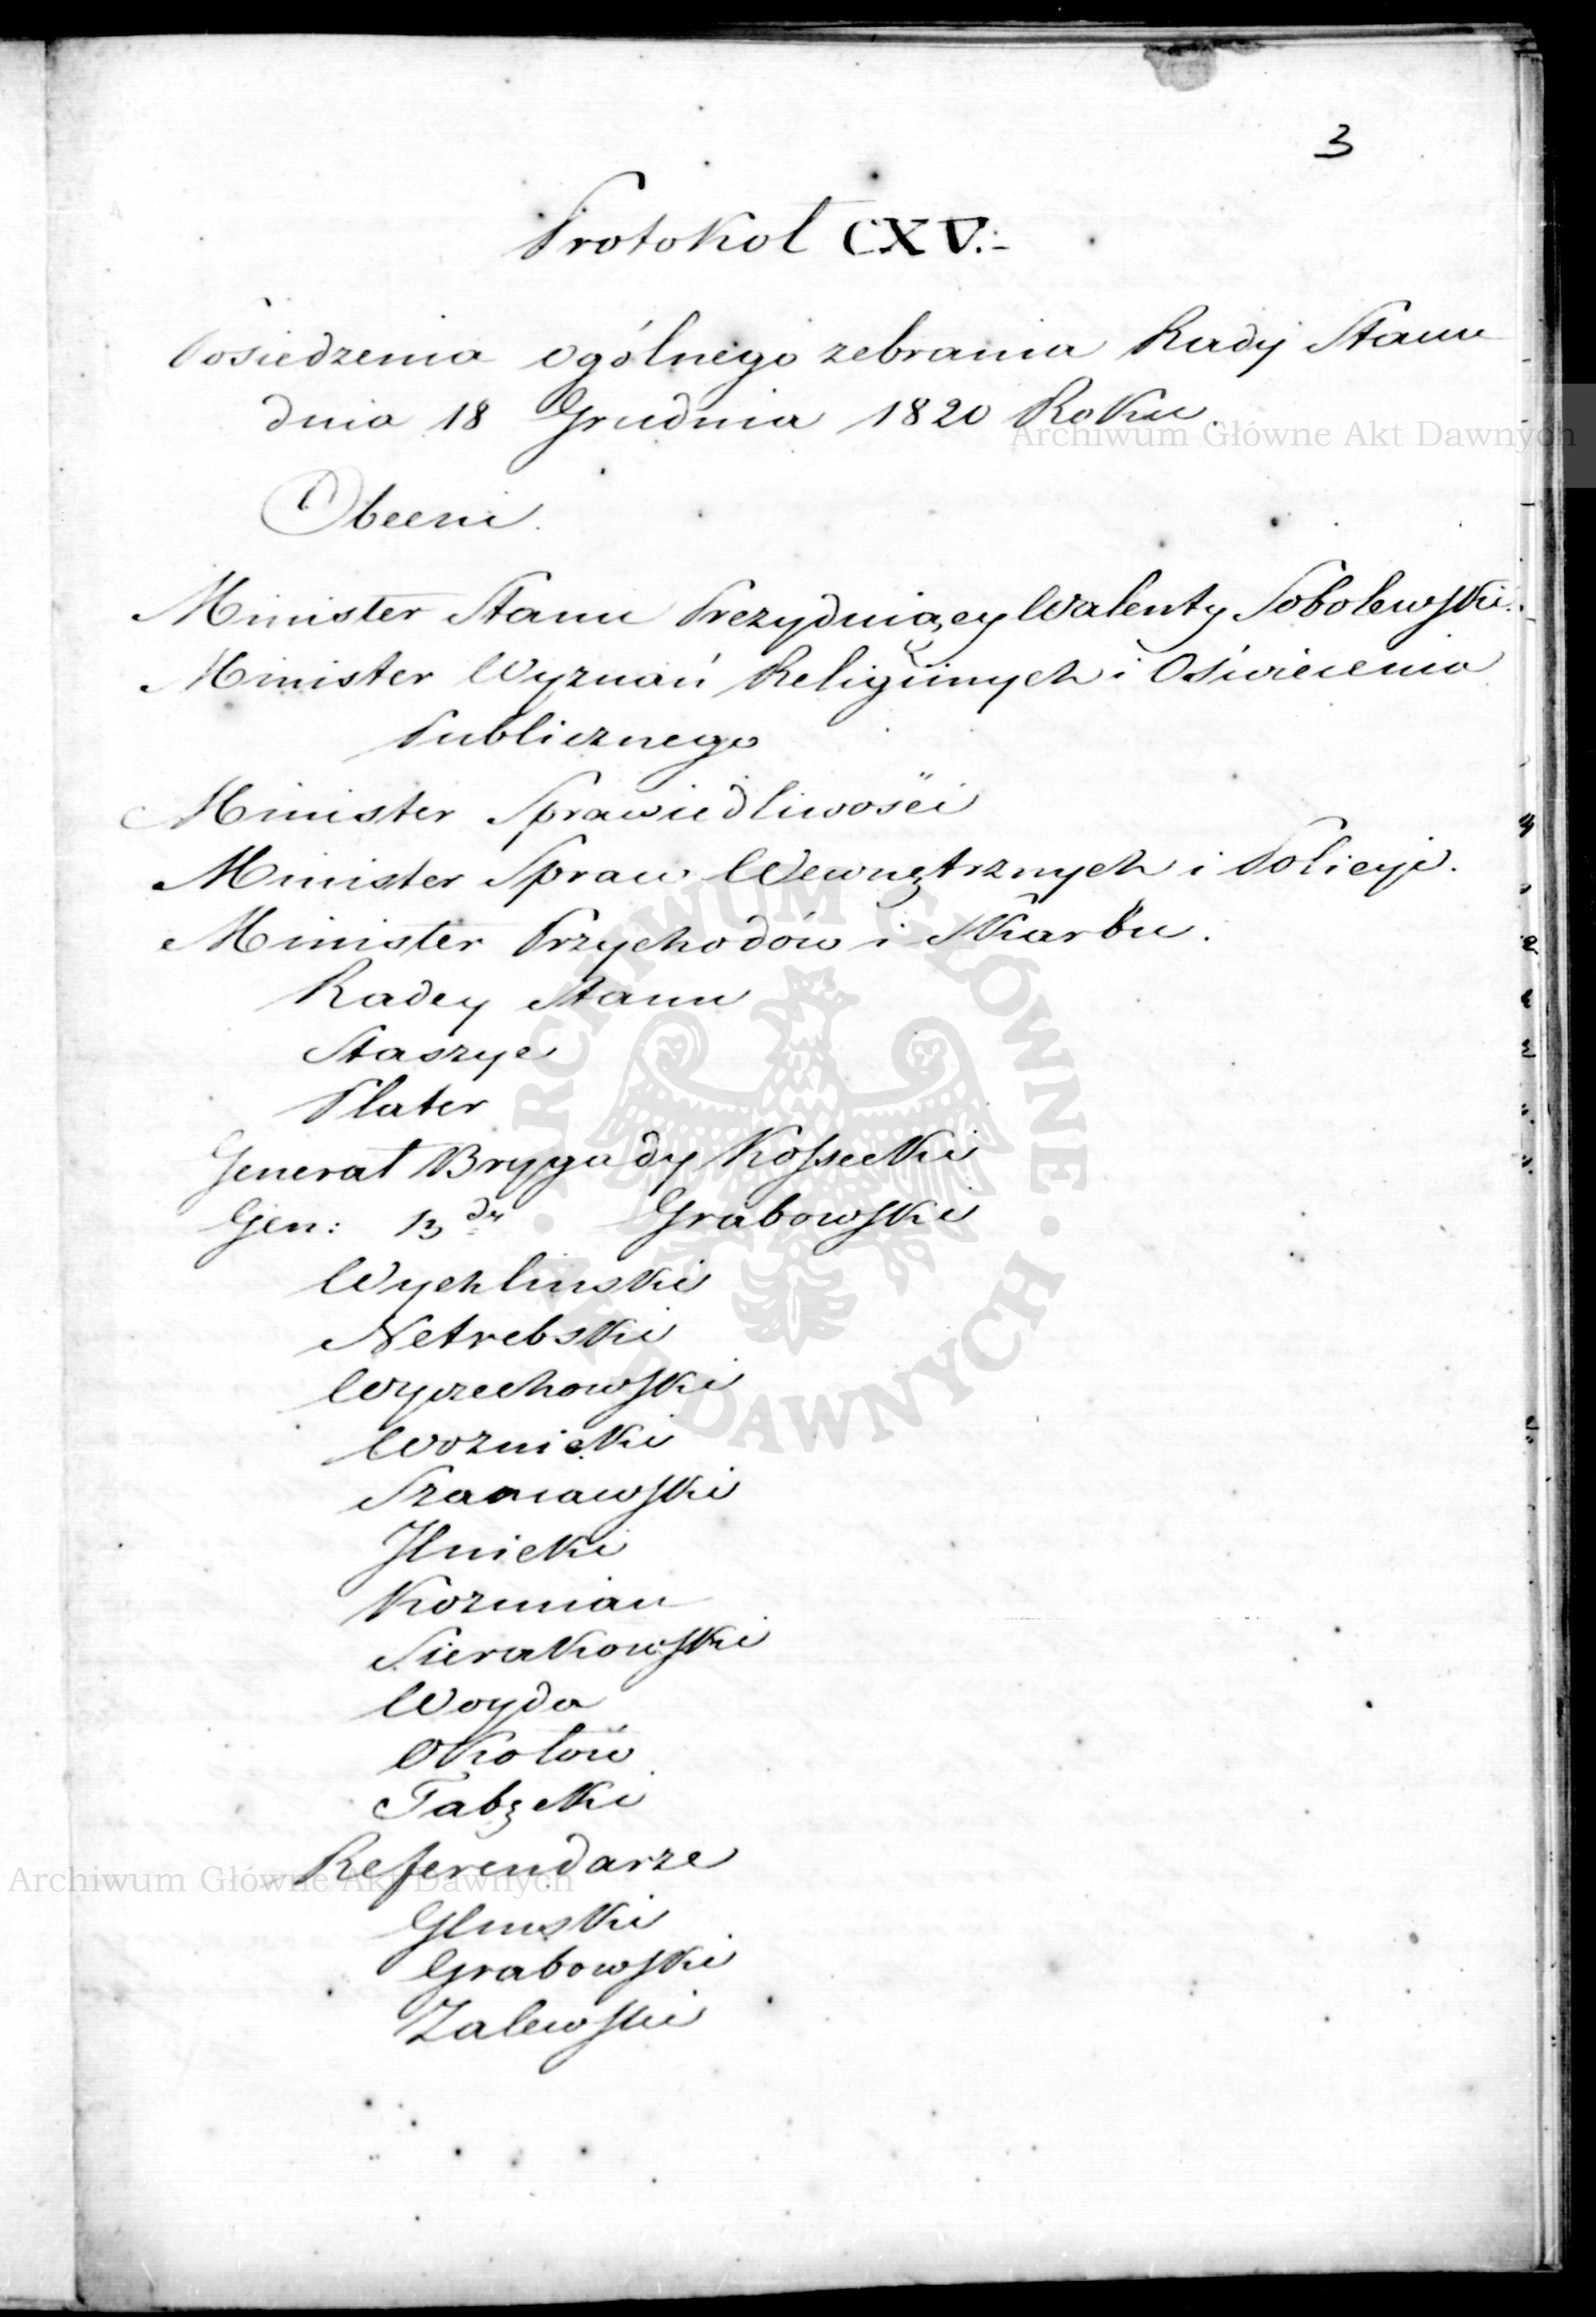 3
Protokoł CXV.
Posiedzenia ogólnego zebrania Rady Stanu
dnia 18 Grudnia 1820 Roku.
Obecni.
Minister Stanu Prezyduiący Walenty Sobolewski.
Minister Wyznań Religiinych i Oświecenia
Publicznego
Minister Sprawiedliwości
Minister Spraw Wewnętrznych i Policyi.
Minister Przychodów i Skarbu.
Radcy Stanu
Staszyc
Plater
Generał Brygady Kossecki
Gen: B dy Grabowski
Wychlinski
Netrebski
Wyczechowski
Woznicki
Szaniawski
Jlnicki
Kozmian
Sierakowski
Woyda
Okołów
Tabęcki
Referendarze
Glinski
Grabowski
Zalewski
Archiwum Główne Akt Dawnych
ARCHIWUM GŁÓWNE AKT DAWNYCH
Archiwum Główne Akt Dawnych